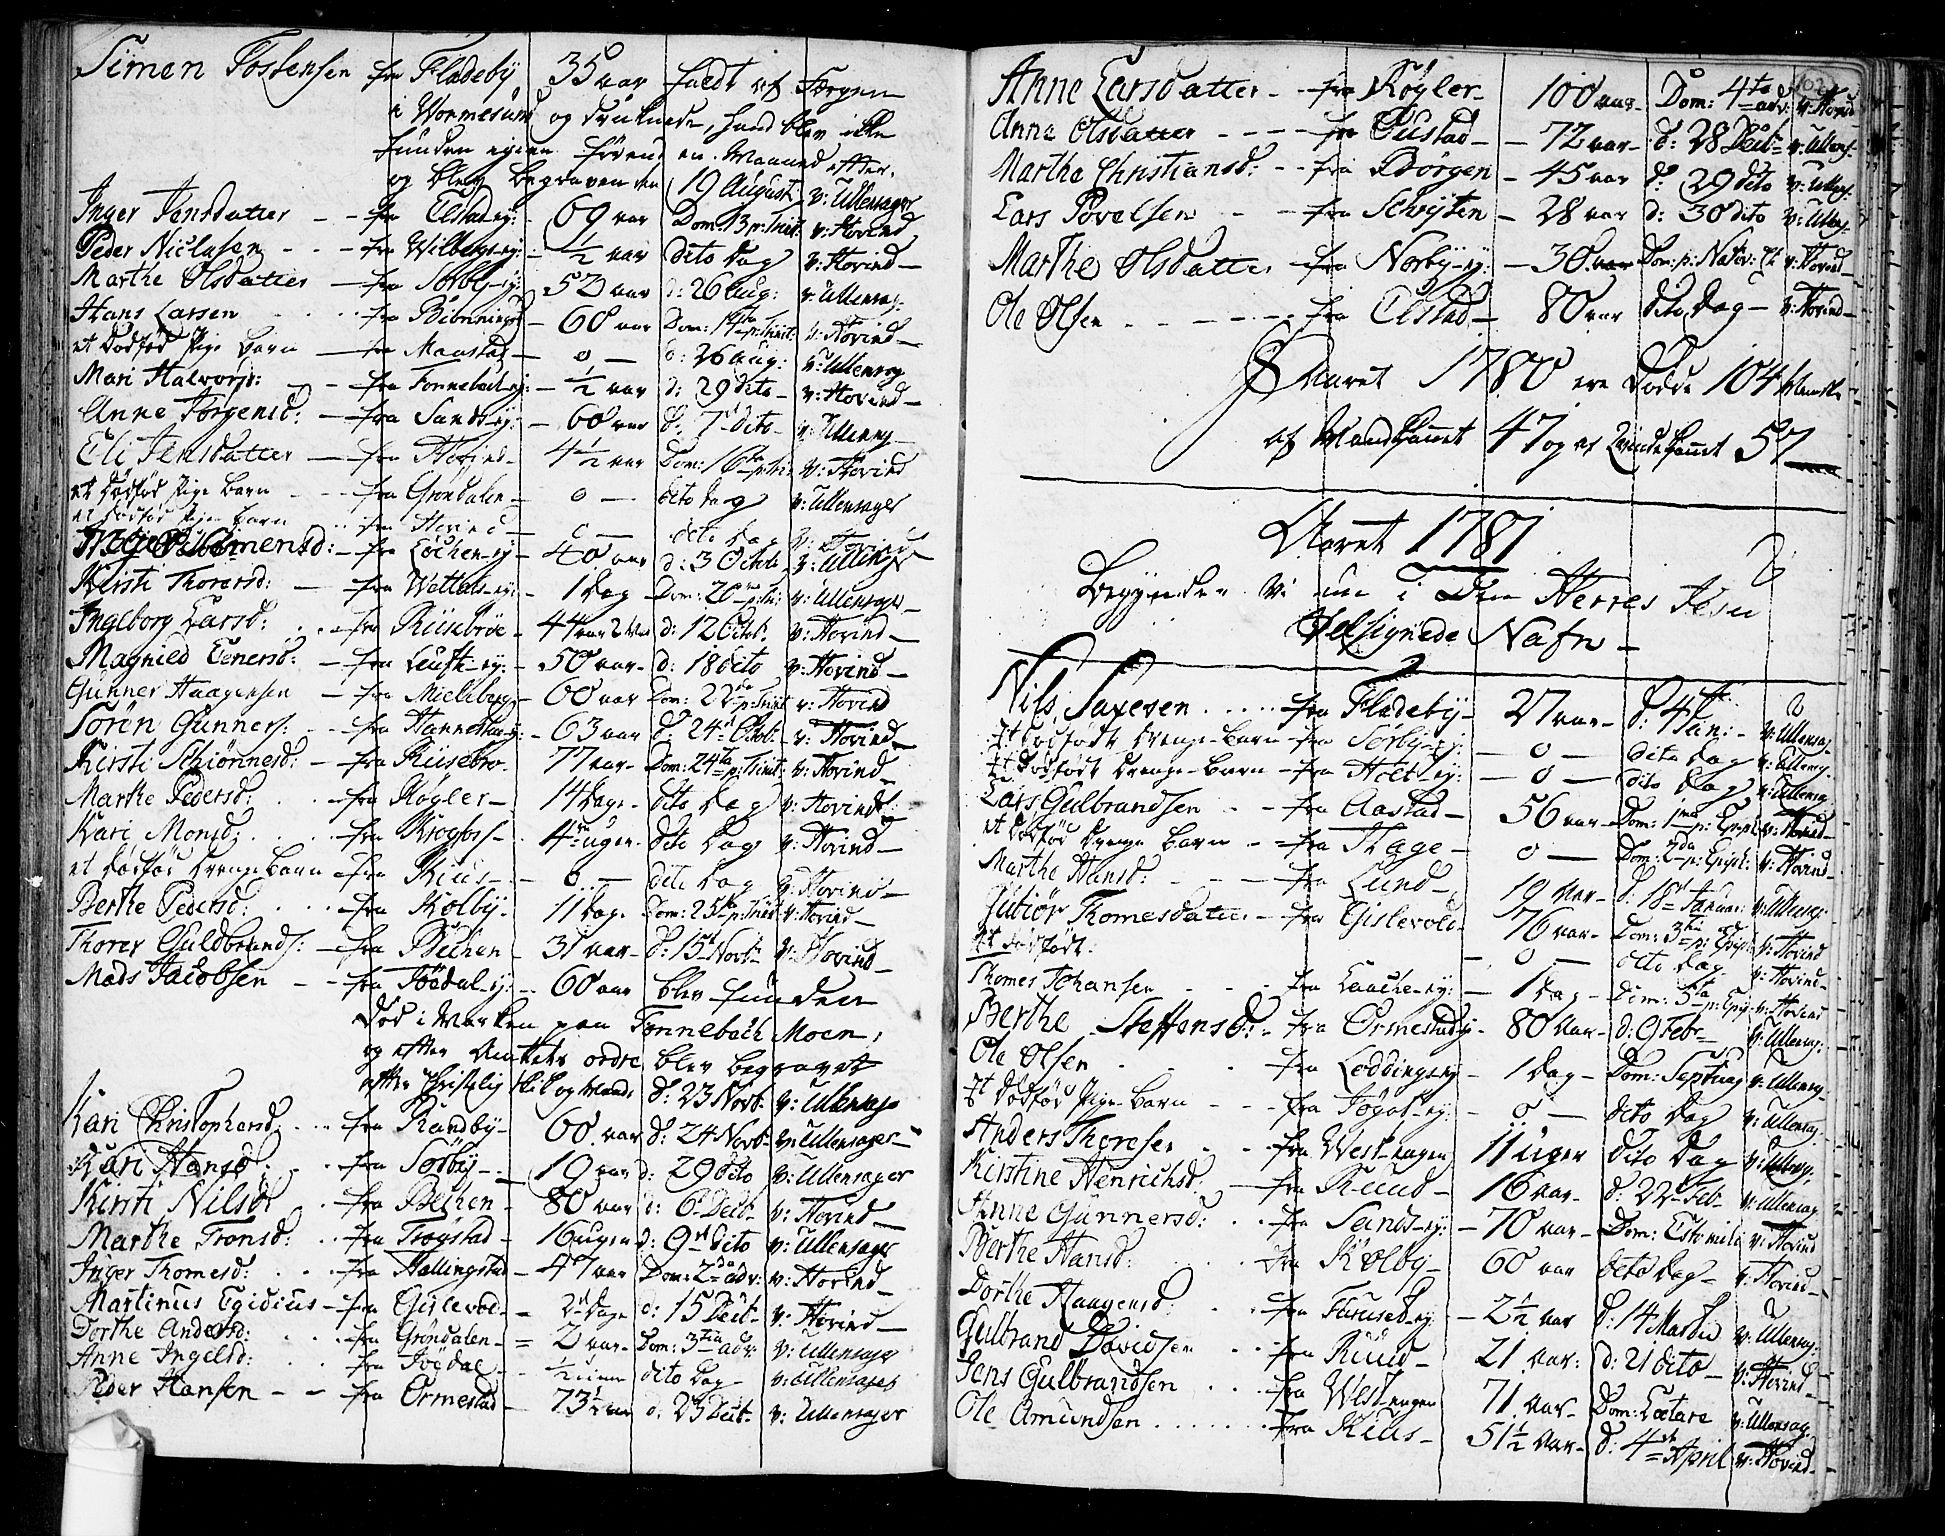 Simen Tostensen fra Fladeby 35 aar faldt af Færgen
i Wormesund og druknede, hand blev ikke
funden igien førend en Maaned efter,
og blev begraven den 19 August v: Ullensager
Inger Jensdatter - - fra Elstad-ej: 69 aar Dom: 13 p: Trinit. v: Hovind
Peder Niclasen - - - fra Wilbergs-ej: - ½ aar dito Dag v: Hovind -
Marthe Olsdatter - fra Sørby-ej: - 52 aar d: 26 Aug: v: Ullensag:
Hans Larsen fra - 60 aar Dom: 14 p: Trinit: v: Hovind -
et Dødfød Pige Barn - fra Maastad - o - d: 26 Aug: v: Ullensag
Mari Halvors: - fra Tonnebek-ej: - ½ aar d: 29 dito - v: Hovind -
Anne Jørgensd: - fra Sands-ej: - 60 aar d: 7 dito - v: Ullensag -
Eli Jensdatter - fra Hovind - 4½ aar Dom: 16 p: Tri: v: Hovind
et Dødfød Pige Barn - - fra Grøndalen - o - dito Dag v: Ullensager
et Dødfød Pige Barn fra Hovind - o - dito Dag v: Hovind
Simensd: - fra Løchen-ej - 40 aar d: 3 Octb: v: Ullensag
Kirsti Thorersd: - fra Wettals-ej: - 1 Dag Dom: 20 p: Tri: v: Ullensager -
Ingeborg Larsd: fra Riisebroe - 44 aar d: 12 Octob: v: Hovind -
Magnild Einersd: - fra -ej: - 50 aar - d: 18 dito v: Hovind -
Gunner Haagensen - fra Mieleberg - 60 aar Dom: 22 p: Trinit v: Hovind
Søren Gunners: - - fra -ej: - 63 aar d: 24 Octob: v: Hovind -
Kirsti Schiønnesd: - fra Riisebro - 77 aar - Dom: 24 p: Trinit: v: Hovind -
Marthe Pedersd: fra Røgler - 14 Dage dito Dag v: Hovind
Kari Monsd: fra Krogfoss - 4 uger - dito Dag v: Hovind -
et Dødfød Drenge Barn - fra Kius - - o - dito Dag v: Hovind -
Berthe Pedersd: - fra Kolby - 11 Dag - Dom: 25 p: Trinit v: Hovind -
Thorer Guldbrands: - fra Bechen - 31 aar - d: 15 Novb - v: Hovind -
Mads Jacobsen - - fra Jøødal-ej: - 60 aar blev funden
død i Marken paa Tonnebech Moen,
og efter Amtets ordre blev begravet
efter Christelig skik og d: 23 Novb: v: Ullensag
Kari Christophersd: fra Randby - 60 aar d: 24 Novb - v: Ullensager -
Kari Hansd: fra Sørby - 19 aar d: 29 dito v: Ullensager
Kirsti Nilsd: fra Bechen - 80 aar d: 6 Decb - v: Hovind -
Marthe Tronsd: fra Trøgstad - 16 uger d: 9 dito v: Ullensager
Inger Thomesd: fra Hallingstad - 47 aar Dom: 2 adv: v: Hovind -
Martinus Egidius - fra Gislevold - 2 Dage d: 15 Decb - v: Hovind -
Dorthe Andersd: fra Grøndalen - 2 aar - Dom: 3 adv: v: Ullensager
Anne Ingelsd: fra Jøgdal - dito Dag v: Ullensager
Peder Hansen - - fra Ormestad - 73½ aar d: 23 Decb - v: Ullensager
Anne Larsdatter - - fra Røgler - 100 aar - Dom: 4 adv: v: Hovind -
Anne Olsdatter - - - - fra Gustad - - 72 aar - d: 28 Decb - v: Ullens: -
Marthe Christiansd: - fra Børgen - 45 aar d: 29 dito v: Ullens: -
Lars Povelsen - - - fra Schøjten - 28 aar d: 30 dito v: Ullens: -
Marthe Olsdatter - fra Norby-ej: - 30 aar Dom: p: Nativ: v: Hovind -
Ole Olsen - - - - - fra Elstad - 80 aar dito Dag - v: Hovind -
Aaret 1780 ere Døde 104
af Mandkønnet 47 og af Qvindekønnet 57
Aaret 1781
Begynder Vi nu i Den Herres Jesu
Velsignede Nafn -
Nils Saxesen fra Fladeby - 27 aar - d: 4 Jan: - v: Ullensag -
Et dødfødt Drenge-Barn - fra Sørby-ej: - o - dito Dag v: Ullensag -
Et Dødfødt Drenge-Barn - fra Holt-ej: - o - dito Dag v: Ullensag
Lars Gulbrandsen - - fra Aastad - 56 aar - Dom: 1 p: Epiph: v: Hovind -
et Dødfød Drenge Barn - fra Hage - o - Dom: 2 p: Epiph: v: Hovind -
Marthe Hansd: - - - fra Lund - 19 Aar - d: 18 Januar: v: Ullensag:
Gubiør Thomesdatter - fra Gislevold - 76 aar - Dom: 3 p: Epiph v: Hovind
Et dødfødt: - o - dito Dag. v: Hovind -
Thomes Johansen fra Laache-ej: - 1 Dag - Dom: 5 p: Epip: v: Hovind
Berthe Steffensd: - fra Ormestad-ej - 80 Aar - d: 9 Febr - v: Ullensag:
Ole Olsen fra Loddings-ej - 1 Dag - Dom: Septuag v: Ullensag -
Et Dødfød Pige-Barn - - - fra Jøgdl-ej: - o - dito Dag v: Ullensag:
Anders Thoresen fra West-hagen 11 uger dito Dag v: Ullensag:
Kirstine Henrichsd: - fra Ruud - 16 aar - d: 22 Feb - v: Ullensag
Anne Gunnersd: fra Sands-ej: - 70 aar - Dom: Estomihi v: Hovind
Berthe Hansd: fra Kolby - 60 aar dito Dag - v: Hovind -
Dorthe Haagensd: fra Furuset-ej - 2½ aar d: 14 Martii v: Ullensag:
Gulbrand Davidsen - - fra Ruud - 21 Aar: d: 21 dito - v: Hovind -
Jens Gulbrandsen fra West-engen 71 Aar - Dom: Lætare v: Ullensag:
Ole Amundsen fra Kius - 51½ Aar - d: 4 April v: Hovind -